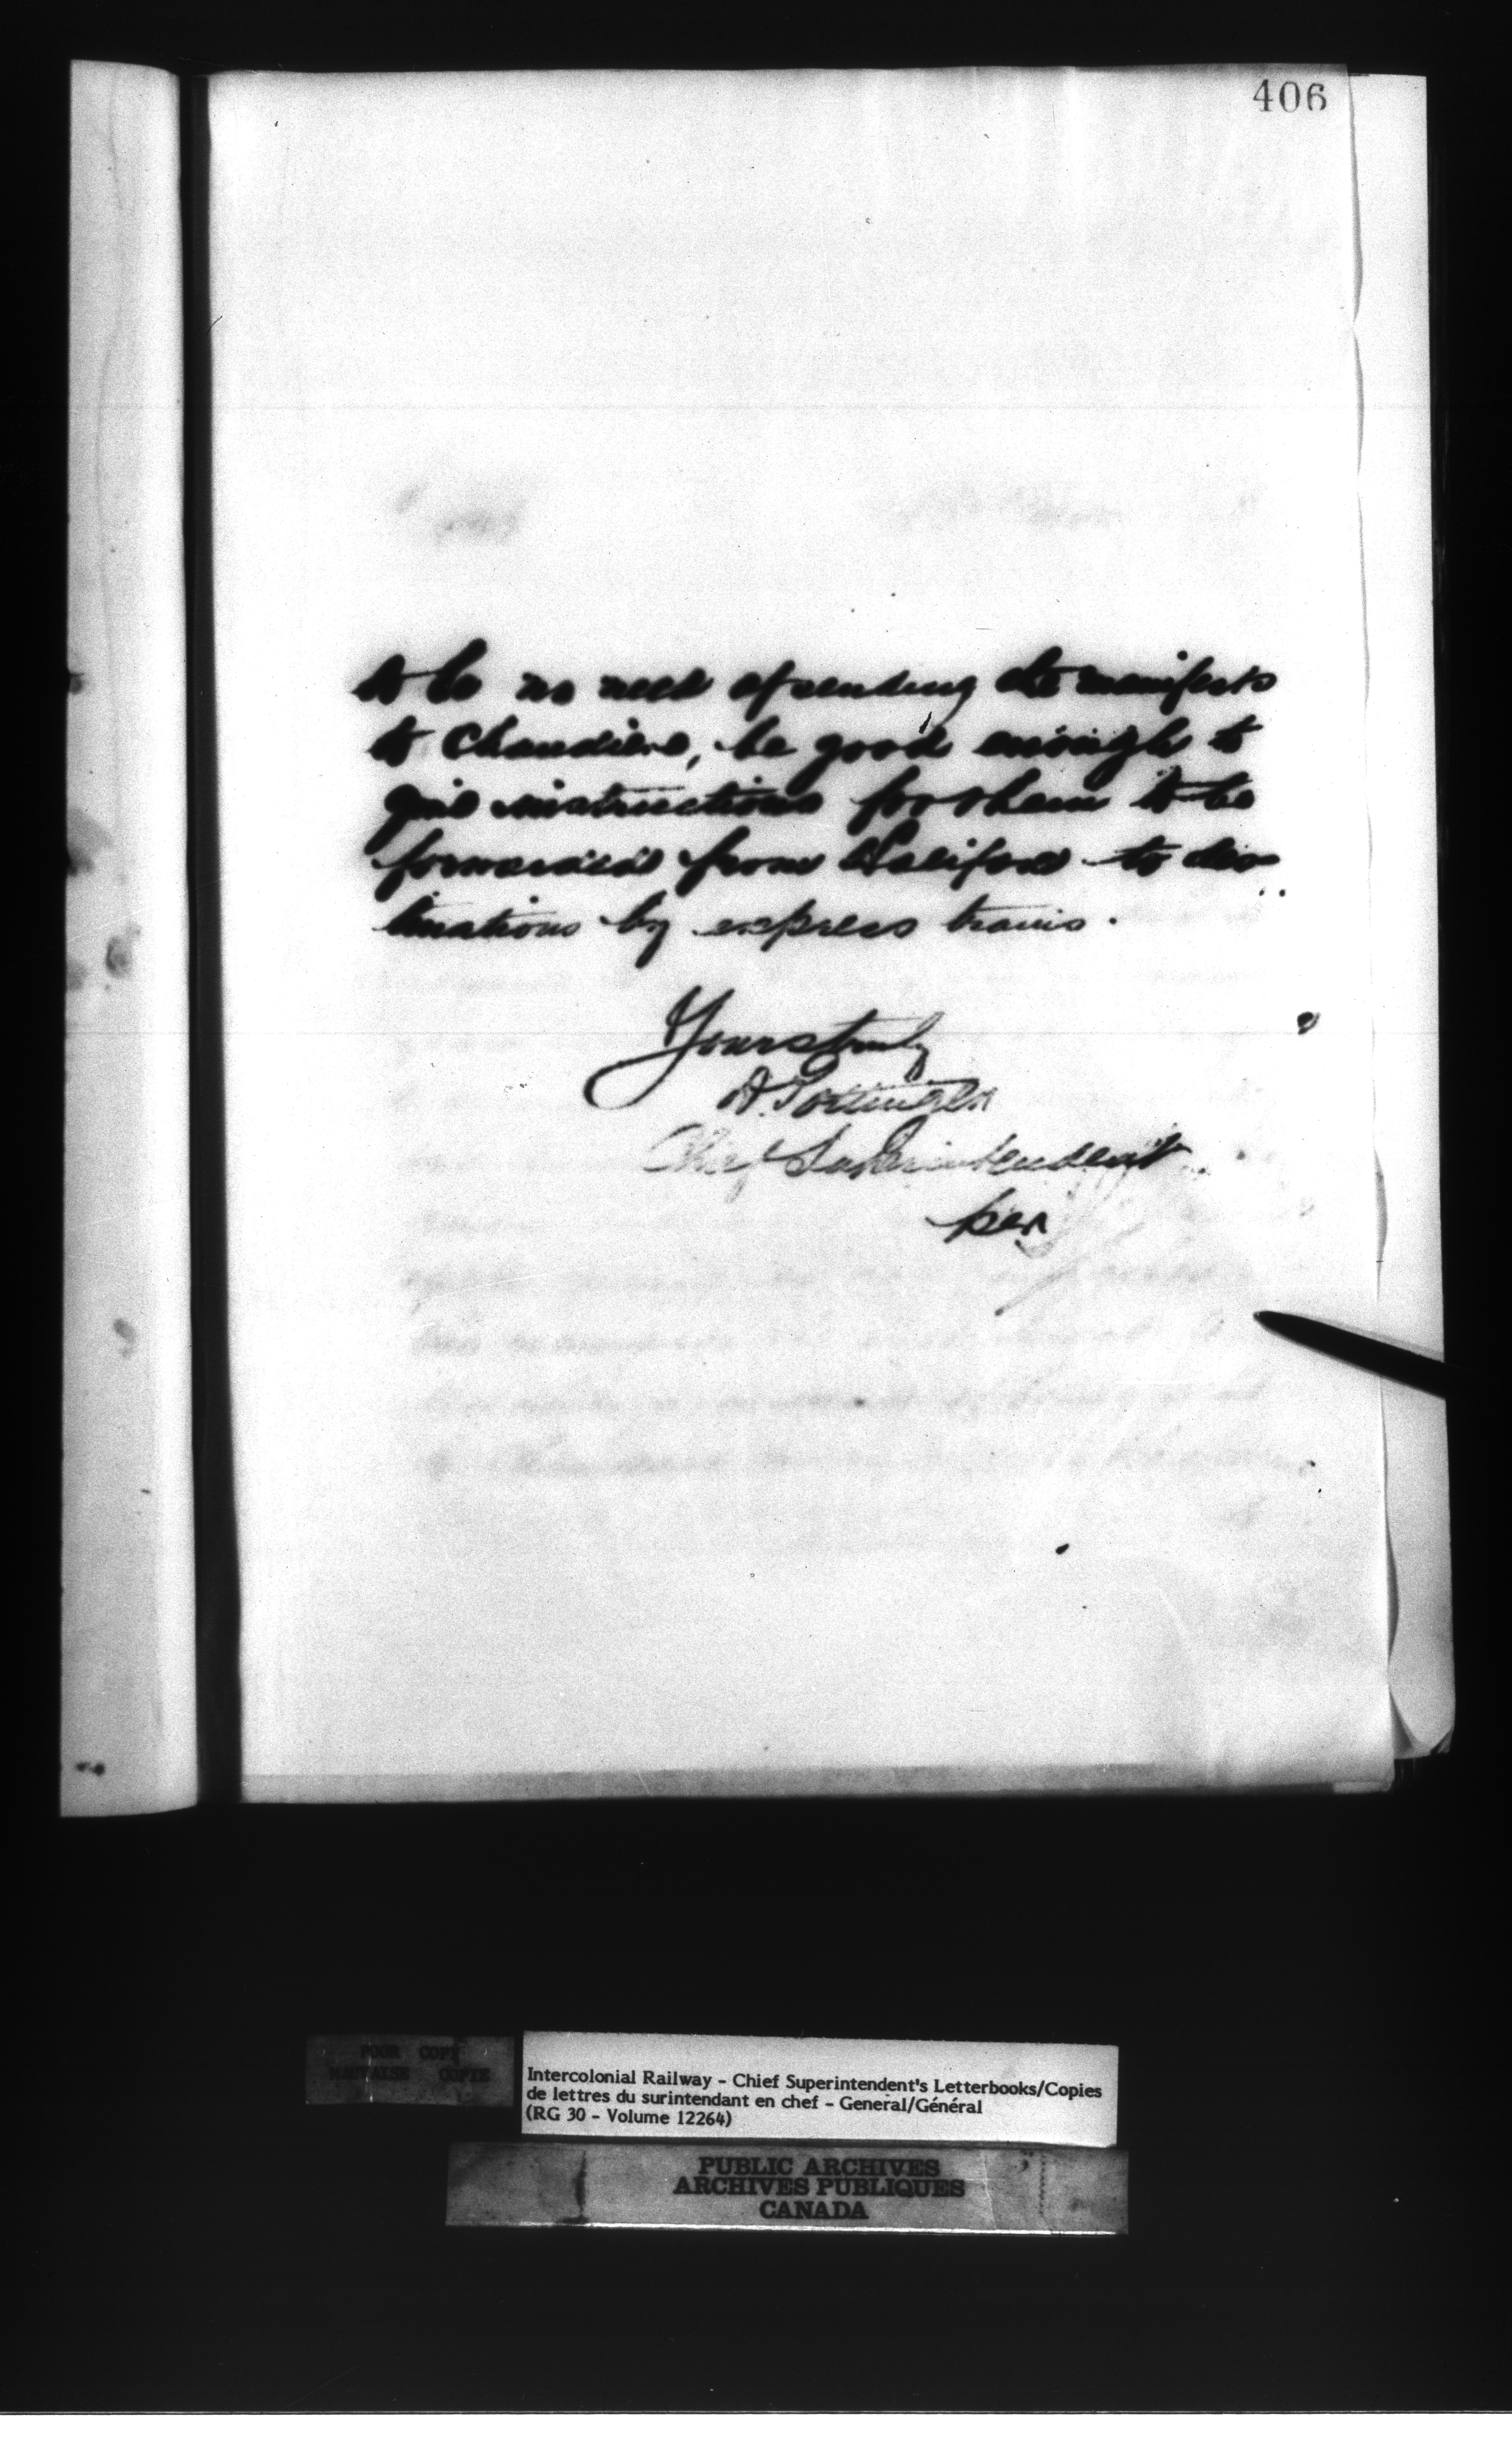 406
to be no need of sending the manifests
to Chaudiere, be good enough to
give instructions for them to be
forwarded from Halifax to des
tinations by express trains.
Yours truly
D. Pottinger
Chief Superintendent
per
POOR COPY
MAUVAISE COPIE
Intercolonial Railway - Chief Superintendent's Letterbooks/Copies
de lettres du surintendant en chef - General/Général
(RG 30 - Volume 12264)
PUBLIC ARCHIVES
ARCHIVES PUBLIQUES
CANADA